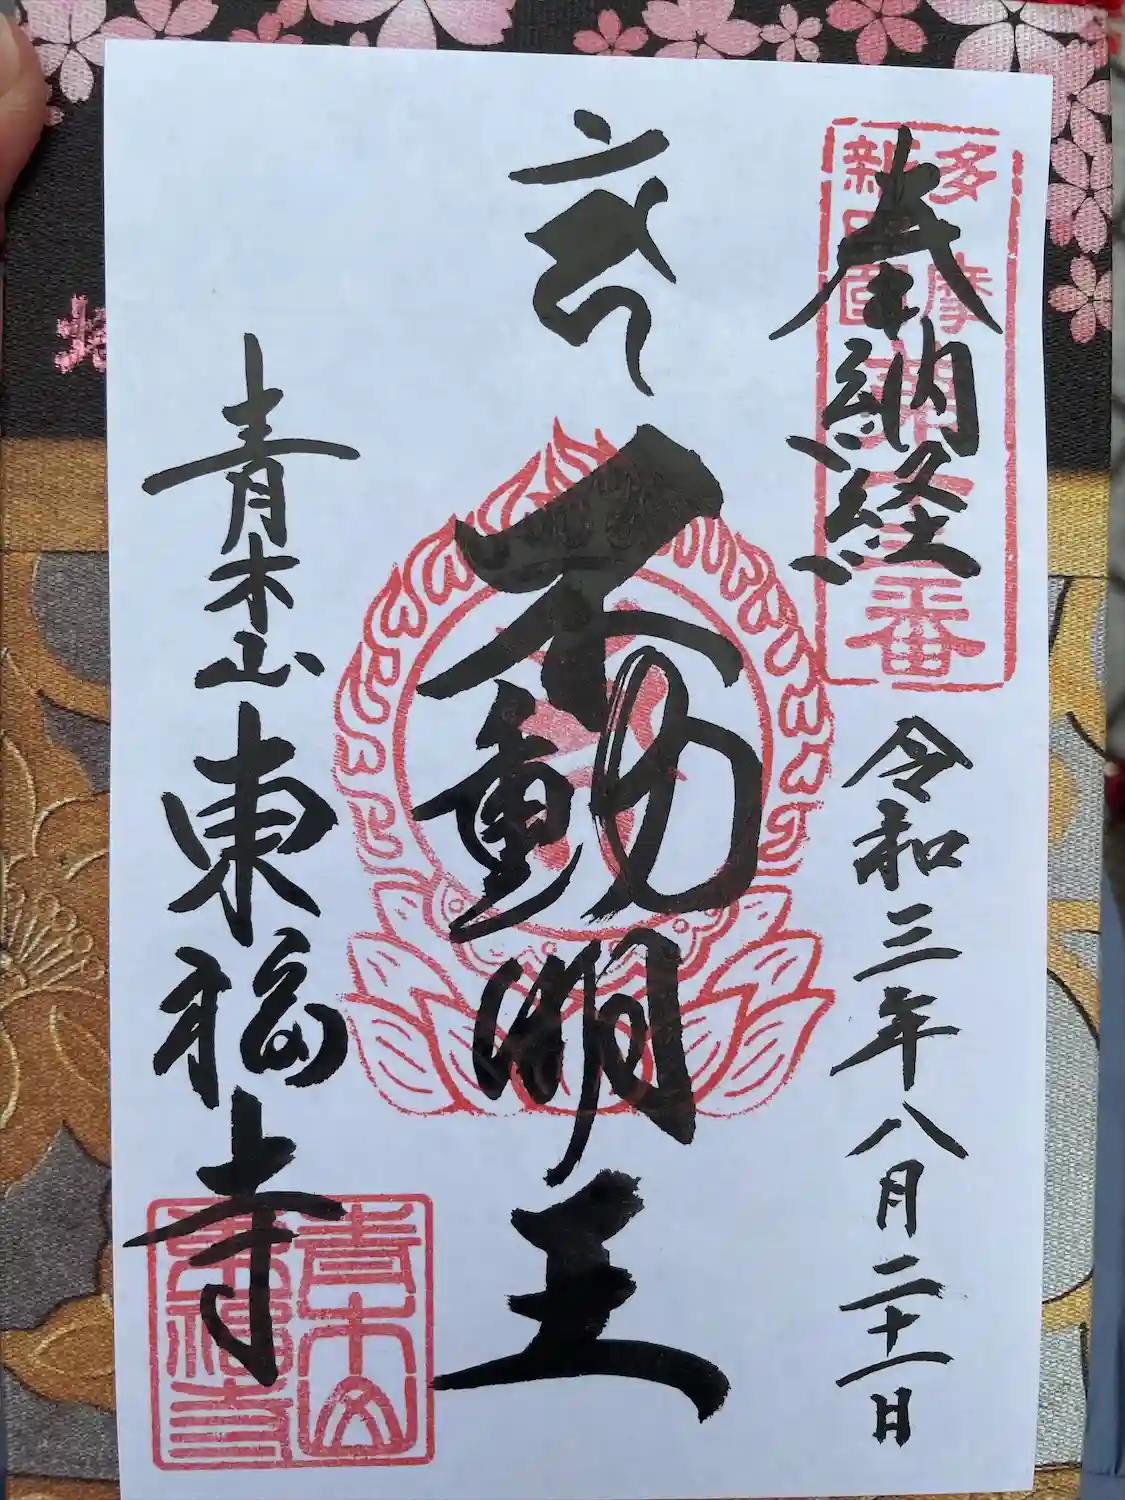 奉納経
令和三年八月二十一日
多摩
番
不動明王
青木山
東福寺
青木山
東福寺